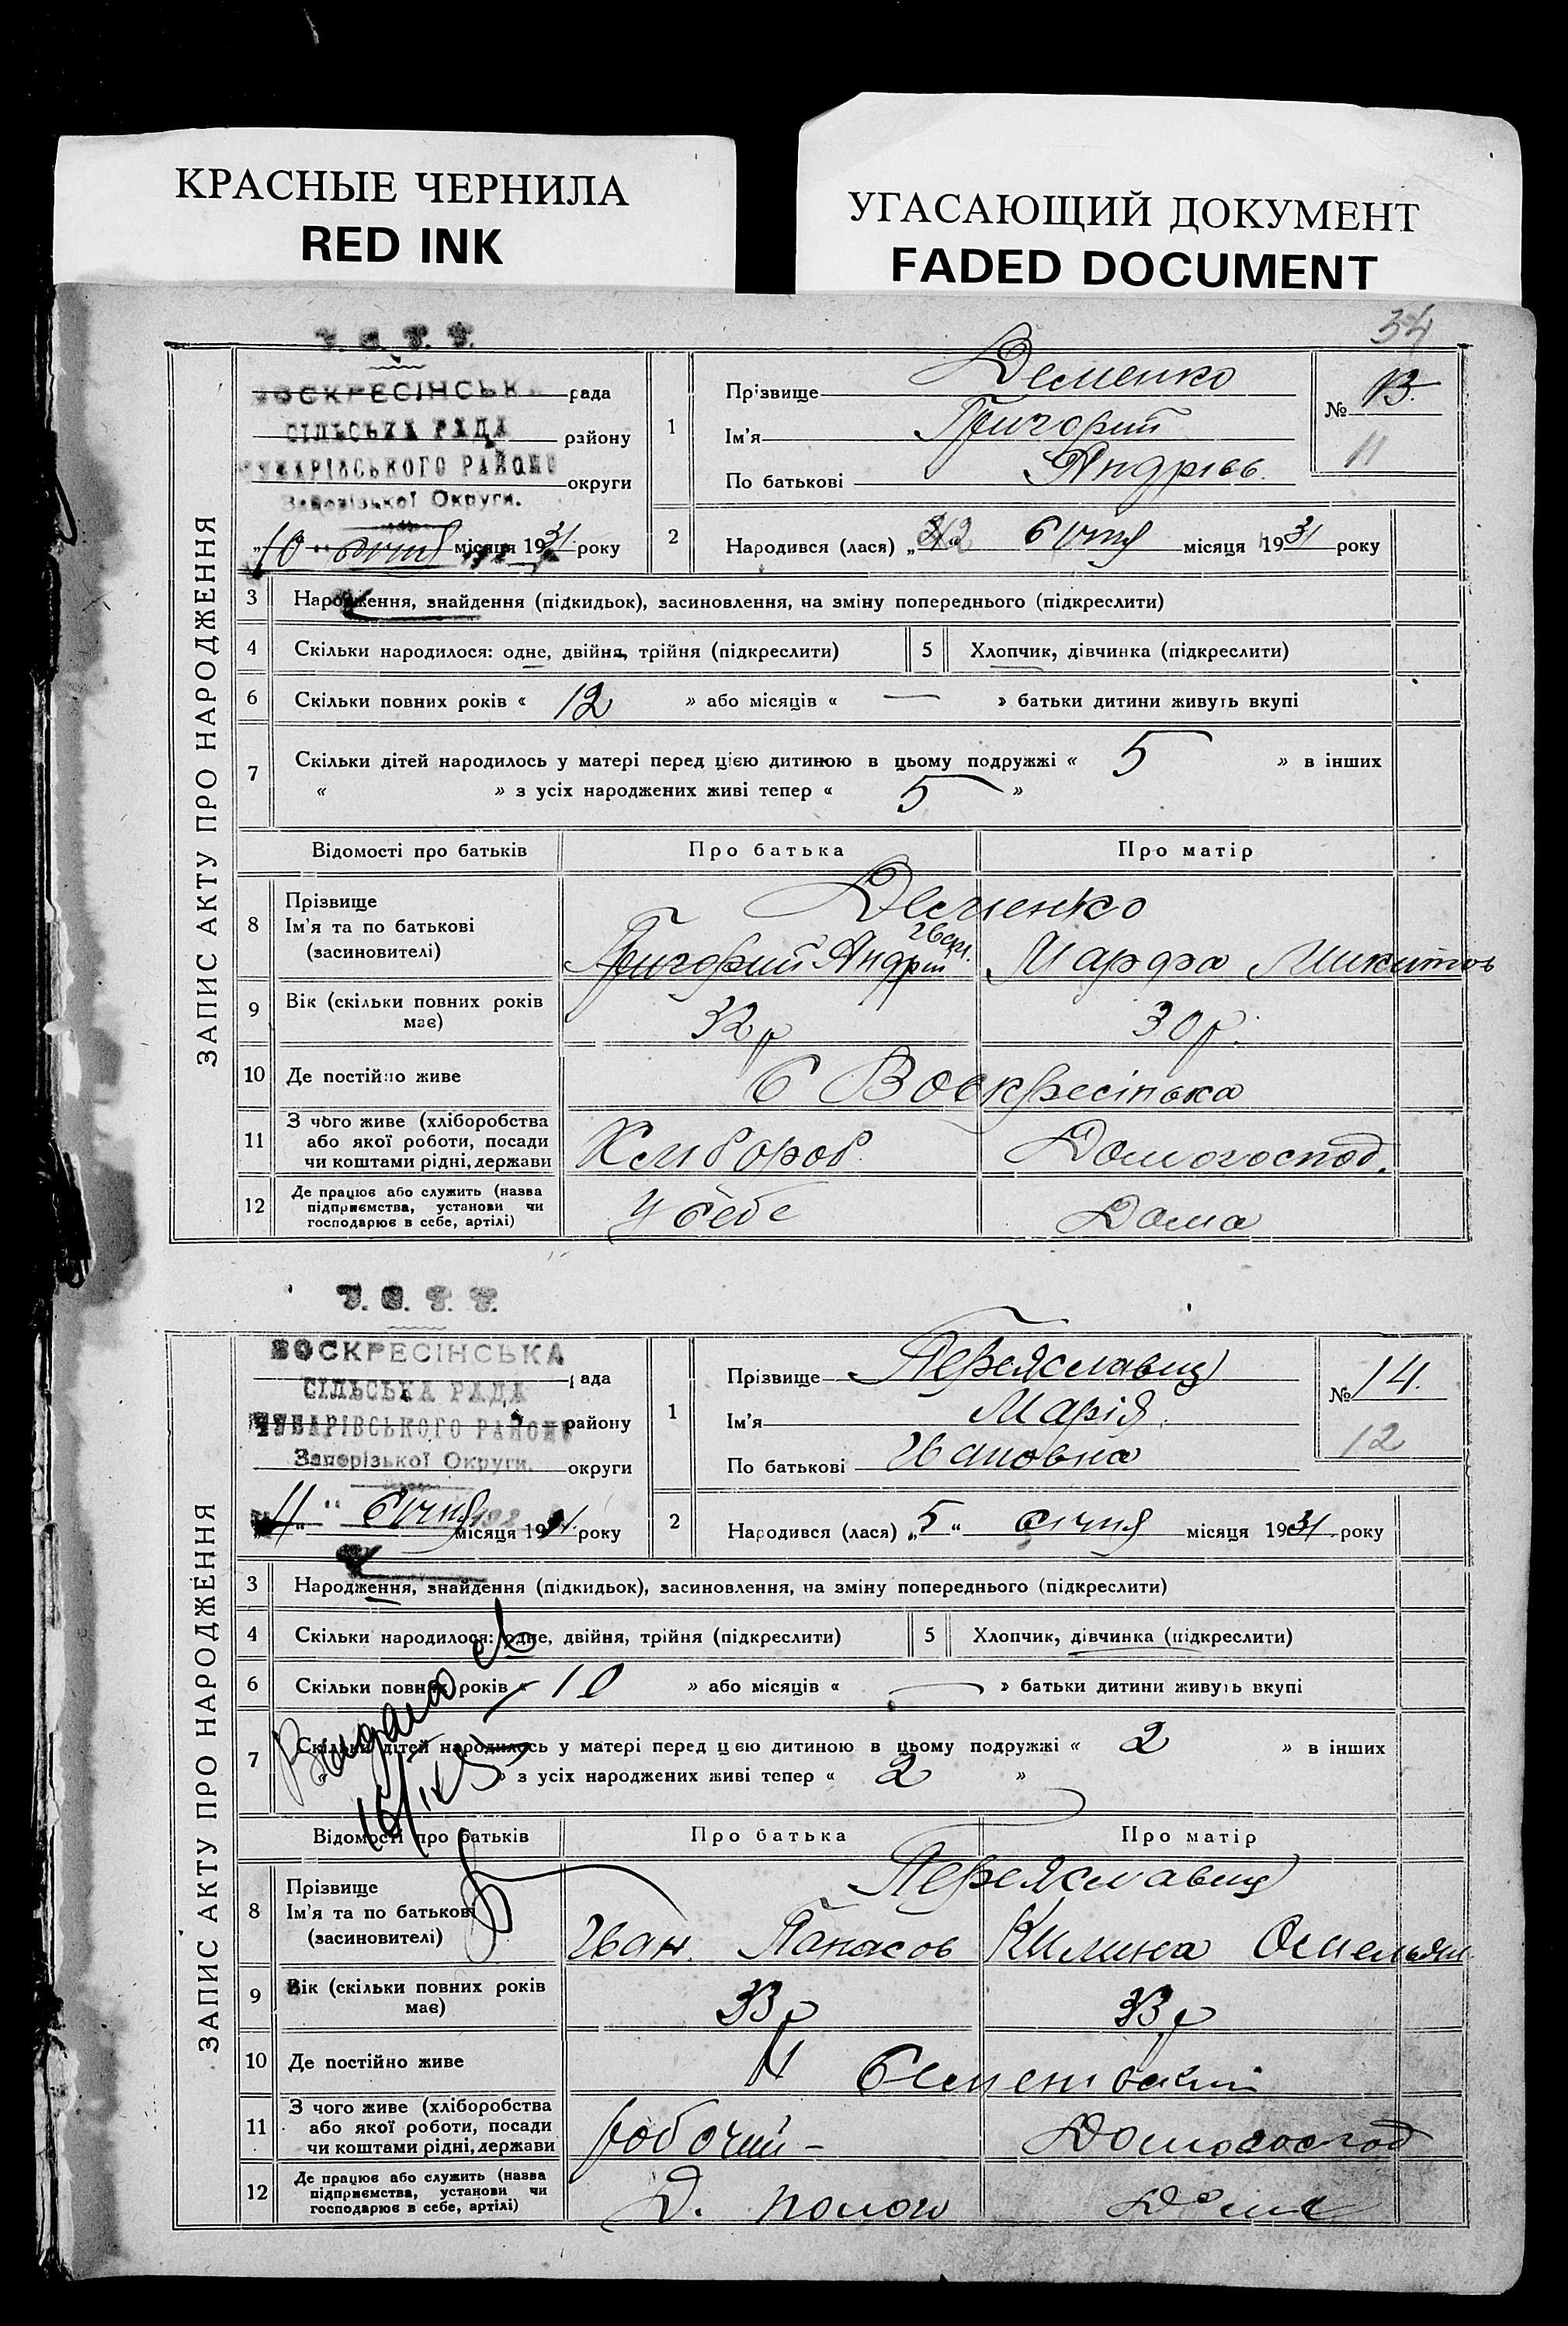 КРАСНЫЕ ЧЕРНИЛА
RED INK
УГАСАЮЩИЙ ДОКУМЕНТ
FADED DOCUMENT
34
ЗАПИС АКТУ ПРО НАРОДЖЕННЯ
ВОСКРЕСІНСЬКА рада
СІЛЬСЬКА РАДА району
ЧУБАРІВСЬКОГО РАЙОНУ
Запорізької Округи. округи
„10“ січня місяця 1931 року
1 Прізвище Деменко
Ім'я Григорий
По батькові Андрієв.
№ 13.
11
2 Народився (лася) „ січня місяця 1931 року
3 Народження, знайдення (підкидьок), засиновлення, на зміну попереднього (підкреслити)
4 Скільки народилося: одне, двійня, трійня (підкреслити) 5 Хлопчик, дівчинка (підкреслити)
6 Скільки повних років « 12 » або місяців « — » батьки дитини живуть вкупі
7 Скільки дітей народилось у матері перед цією дитиною в цьому подружжі « 5 » в інших
« » з усіх народжених живі тепер « 5 »
Відомості про батьків Про батька Про матір
8 Прізвище Деменко
Ім'я та по батькові Григорий Андрій Марфа Микитов
(засиновителі)
9 Вік (скільки повних років має) 32р 30р.
10 Де постійно живе С Воскресінька
11 З чого живе (хліборобства
або якої роботи, посади
чи коштами рідні, держави Хлибороб. Домогоспод.
12 Де працює або служить (назва
підприємства, установи чи
господарює в себе, артілі) У себе Дома
У. С. Р. Р.
ЗАПИС АКТУ ПРО НАРОДЖЕННЯ
ВОСКРЕСІНСЬКА
СІЛЬСЬКА РАДА рада
ЧУБАРІВСЬКОГО РАЙОНУ району
Запорізької Округи. округи
„11“ січня місяця 1931 року
1 Прізвище Переяславец
Ім'я Марія.
По батькові Ивановна
№ 14.
12
2 Народився (лася) „5“ січня місяця 1931 року
3 Народження, знайдення (підкидьок), засиновлення, на зміну попереднього (підкреслити)
4 Скільки народилося: одне, двійня, трійня (підкреслити) 5 Хлопчик, дівчинка (підкреслити)
6 Скільки повних років « 10 » або місяців « — » батьки дитини живуть вкупі
7 Скільки дітей народилось у матері перед цією дитиною в цьому подружжі « 2 » в інших
» з усіх народжених живі тепер « 2 »
Відомості про батьків Про батька Про матір
8 Прізвище Переяславец
Ім'я та по батькові
(засиновителі) Иван Панасов Килина Омельян
9 Вік (скільки повних років має) 33р 33р
10 Де постійно живе
11 З чого живе (хліборобства
або якої роботи, посади
чи коштами рідні, держави робочий - Домогоспод
12 Де працює або служить (назва
підприємства, установи чи
господарює в себе, артілі) Дома